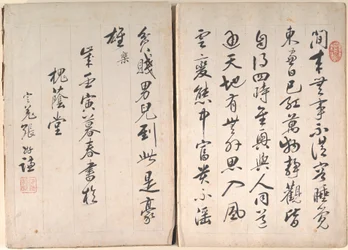 閒來無事不從容睡覺
東窗日已紅萬物靜觀皆
自得四時佳興與人同道
通天地有形外思入風
雲變態中富貴不淫
貧賤男兒到此是豪
雄 樂
歲壬寅暮春書於
槐蔭堂
張謙